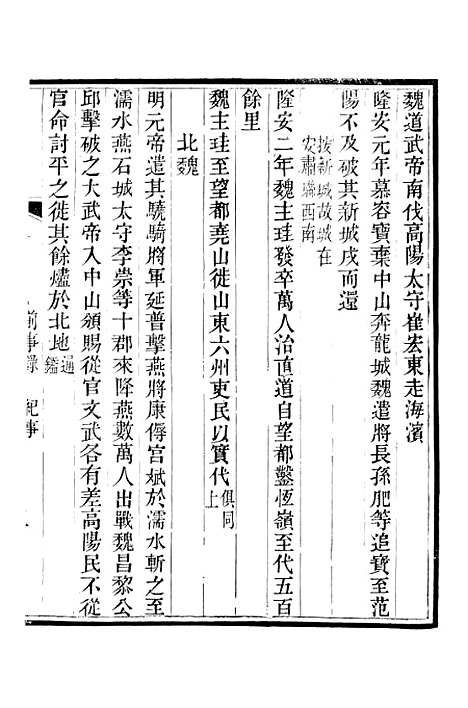 魏道武帝南伐高陽太守崔宏東走海濱
隆安元年慕容寶棄中山奔龍城魏遣將長孫肥等追寶至范
陽不及破其新城戍而還
按新城故城在
安肅縣西南
隆安二年魏主珪發卒萬人治直道自望都鑿恆嶺至代五百
餘里
魏主珪至望都堯山徙山東六州吏民以實代俱同上
北魏
明元帝遣其驍騎將軍延普擊燕將康傉官斌於濡水斬之至
濡水燕石城太守李崇等十郡來降燕數萬人出戰魏昌黎公
邱擊破之大武帝入中山頒賜從官文武各有差高陽民不從
官命討平之徙其餘燼於北地通鑑
前事錄 紀事